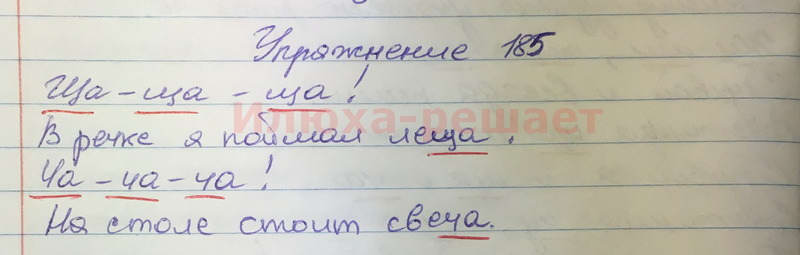 Упражнение 185
Ща – ща – ща!
Илюха-решает
В речке я поймал леща.
Ча – ча – ча!
На столе стоит свеча.